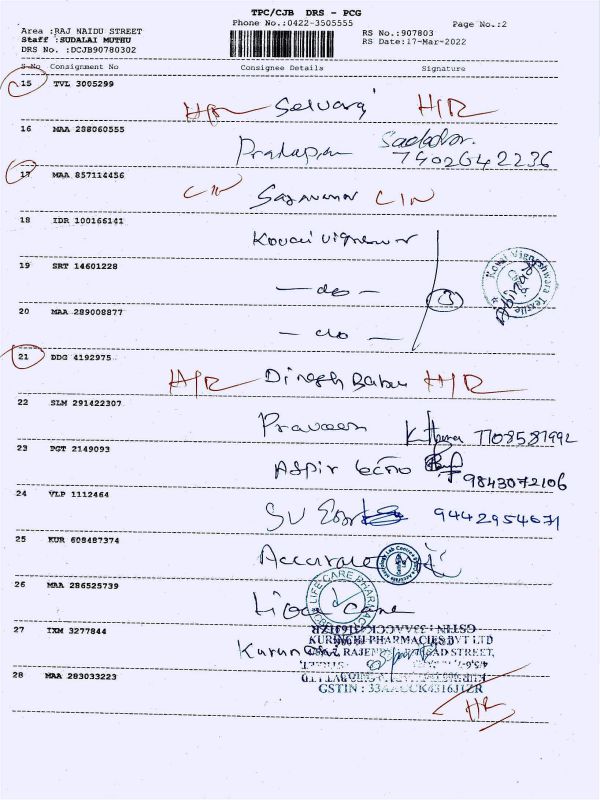 TPC/CJB DRS - PCG
Phone No.:0422-3505555
Page No.:2
Area :RAJ NAIDU STREET
Staff :SUDALAI MUTHU
DRS No. :DCJB90780302
RS No.:907803
RS Date:17-Mar-2022
S.No Consignment No Consignee Details Signature
15 TVL 3005299
H/R Selvaraj H/R
16 MAA 288060555
Pratap 7402642236
17 MAA 857114456
C/N Saravanan C/N
18 IDR 100166141
Kovai Vigneswar
19 SRT 14601228
— do — 3
20 MAA 289008877
— do —
21 DDG 4192975
H/R Dinesh Babu H/R
22 SLM 291422307
Praveen 7708587992
23 PGT 2149093
Aspir 9843072106
24 VLP 1112464
SV 9442954671
25 KUR 608487374
Accurate
26 MAA 286525739
LIFE CARE PHARMACY
27 IXM 3277844
KURINCHI PHARMACIES PVT LTD
28 MAA 283033223
GSTIN : 33AACCK4316J1ZR
H/R